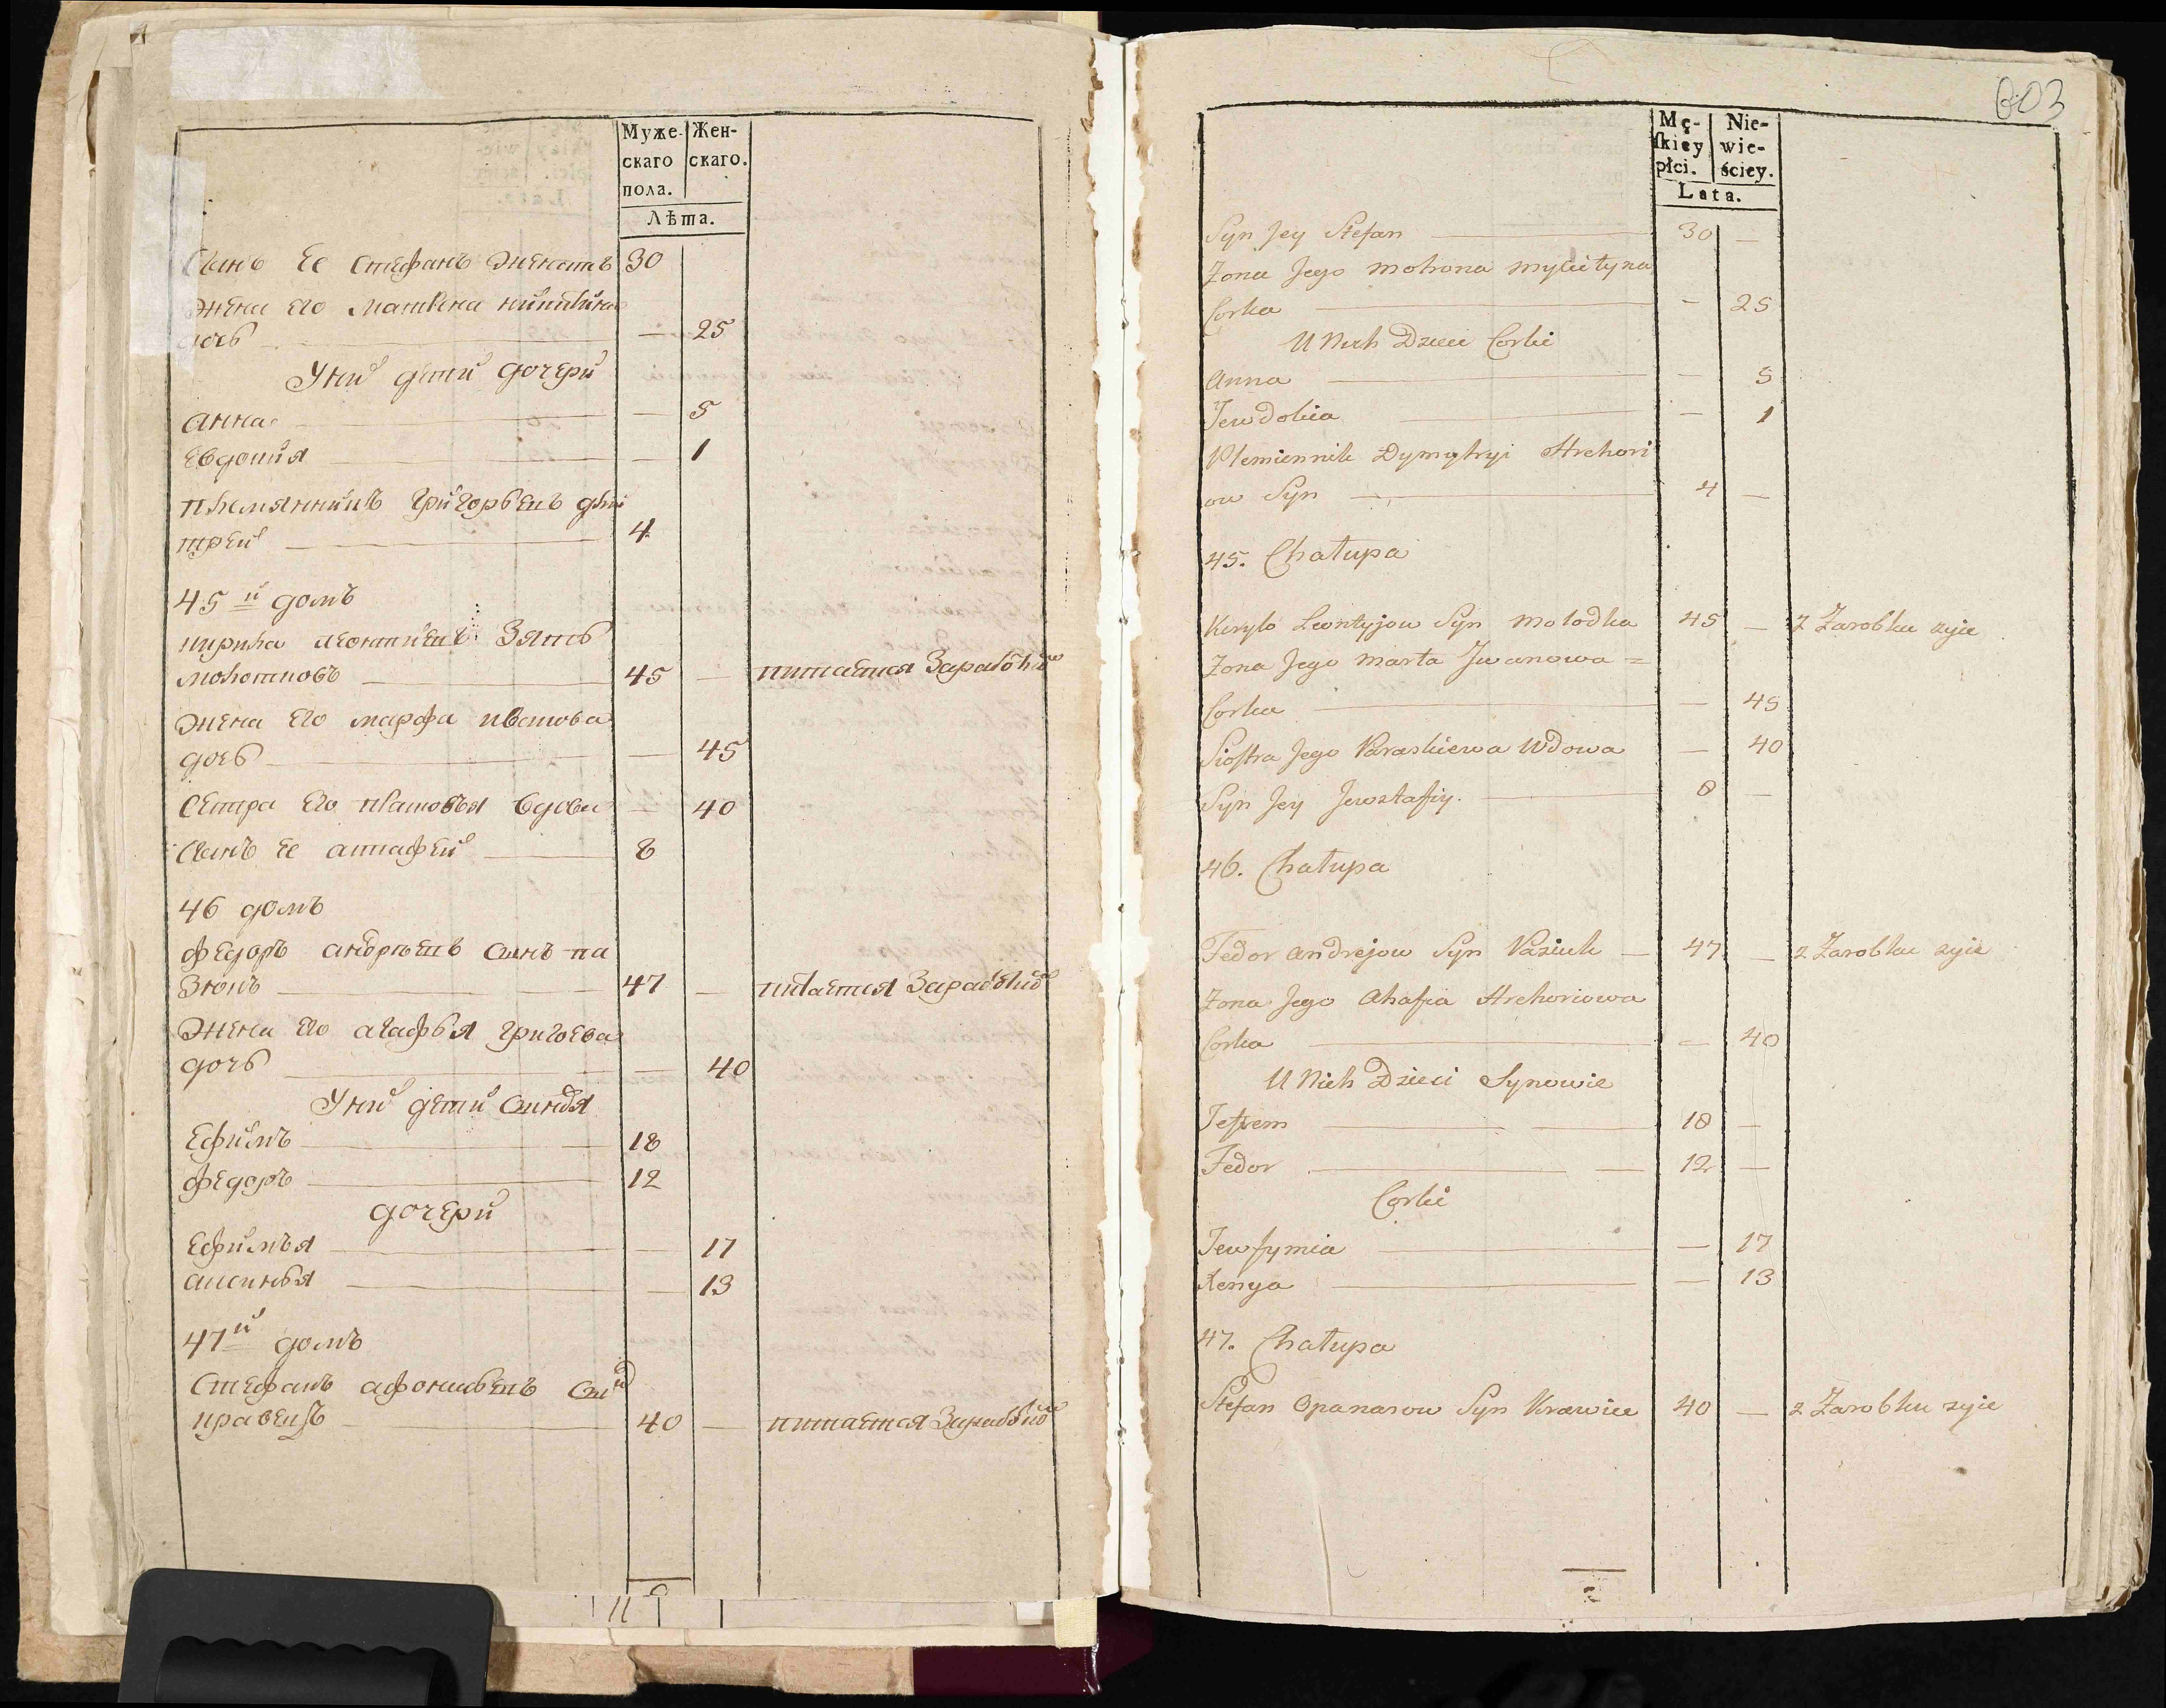 Муже- Жен-
скаго скаго.
пола.
Лѣта.
Сынъ ее Стефанъ женатъ 30
жена его матрена никитина
дочь — 25
У них дети дочери
анна — 5
Евдокия — 1
племянникъ григорьевъ дми
трей 4
45й домъ
кирила леонтиевъ Зять
молотковъ 45 — питается Заработком
жена его марфа иванова
дочь — 45
Сестра его вдова — 40
Сынъ ее астафей 8
46 домъ
федоръ андреевъ сынъ па
зюкъ 47 — питается Заработком
жена его агафья григоева
дочь — 40
У них дети синовя
Ефимъ 18
федоръ 12
дочери
Ефимья — 17
аксинья — 13
47й домъ
Стефанъ афонасьевъ сын
кравецъ 40 — питается Заработком
803
Mę- Nie-
skiey wie-
płci. ściey.
Lata.
Syn Jey Stefan 30 —
Zona Jego Motrona Mykityna
Corka — 25
U Nich Dzieci Corki
Anna — 5
Jewdokia — 1
Plemiennik Dymytryi Hrehori
ow Syn 4 —
45. Chałupa
Kiryło Leontyjow Syn Mołodka 45 — z Zarobku zyie
Zona Jego Marta Jwanowa =
Corka — 45
Siostra Jego Paraskiewa Wdowa — 40
Syn Jey Jewstafiy. 8 —
46. Chałupa
Fedor Andrejow Syn Paziuk — 47 — z Zarobku zyie
Zona Jego Ahafia Hrehoriowa
Corka — 40
U Nich Dzieci Synowie
18 —
Fedor 12 —
Corki
Jewfymia — 17
Xenya — 13
47. Chałupa
Stefan Opanasow Syn Krawiec 40 — z Zarobku zyie